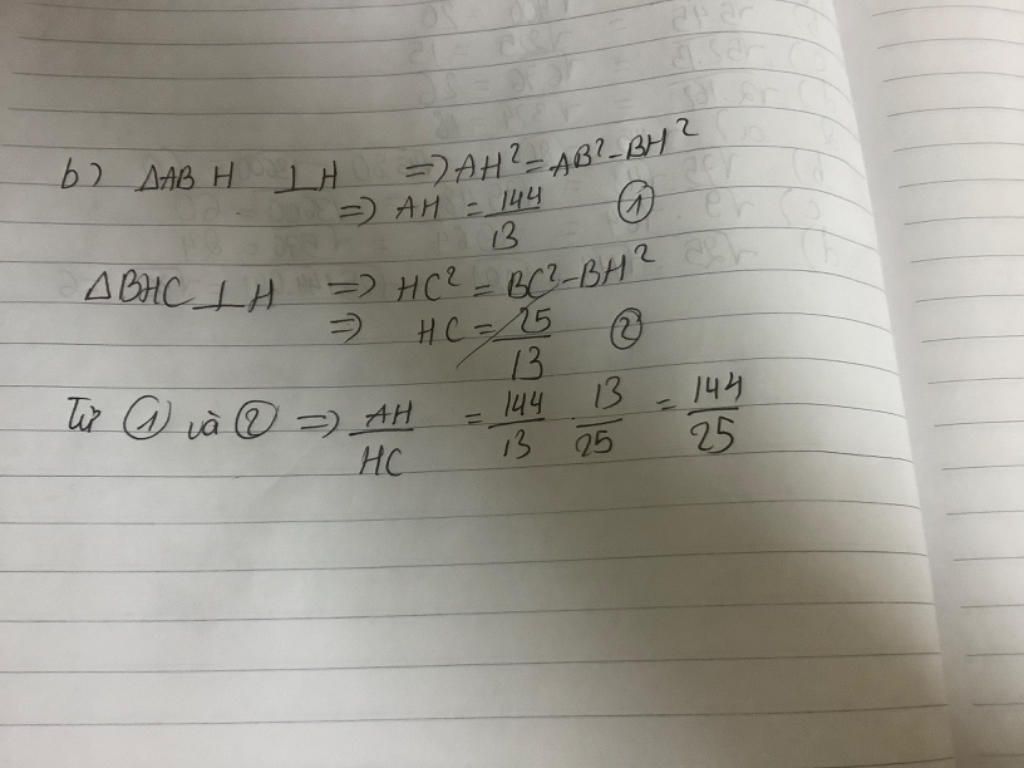 b) ΔABH ⊥H => AH² = AB² - BH²
=> AH = 144/13 ①
ΔBHC ⊥H => HC² = BC² - BH²
=> HC = 25/13 ②
Từ ① và ② => AH/HC = 144/13 . 13/25 = 144/25